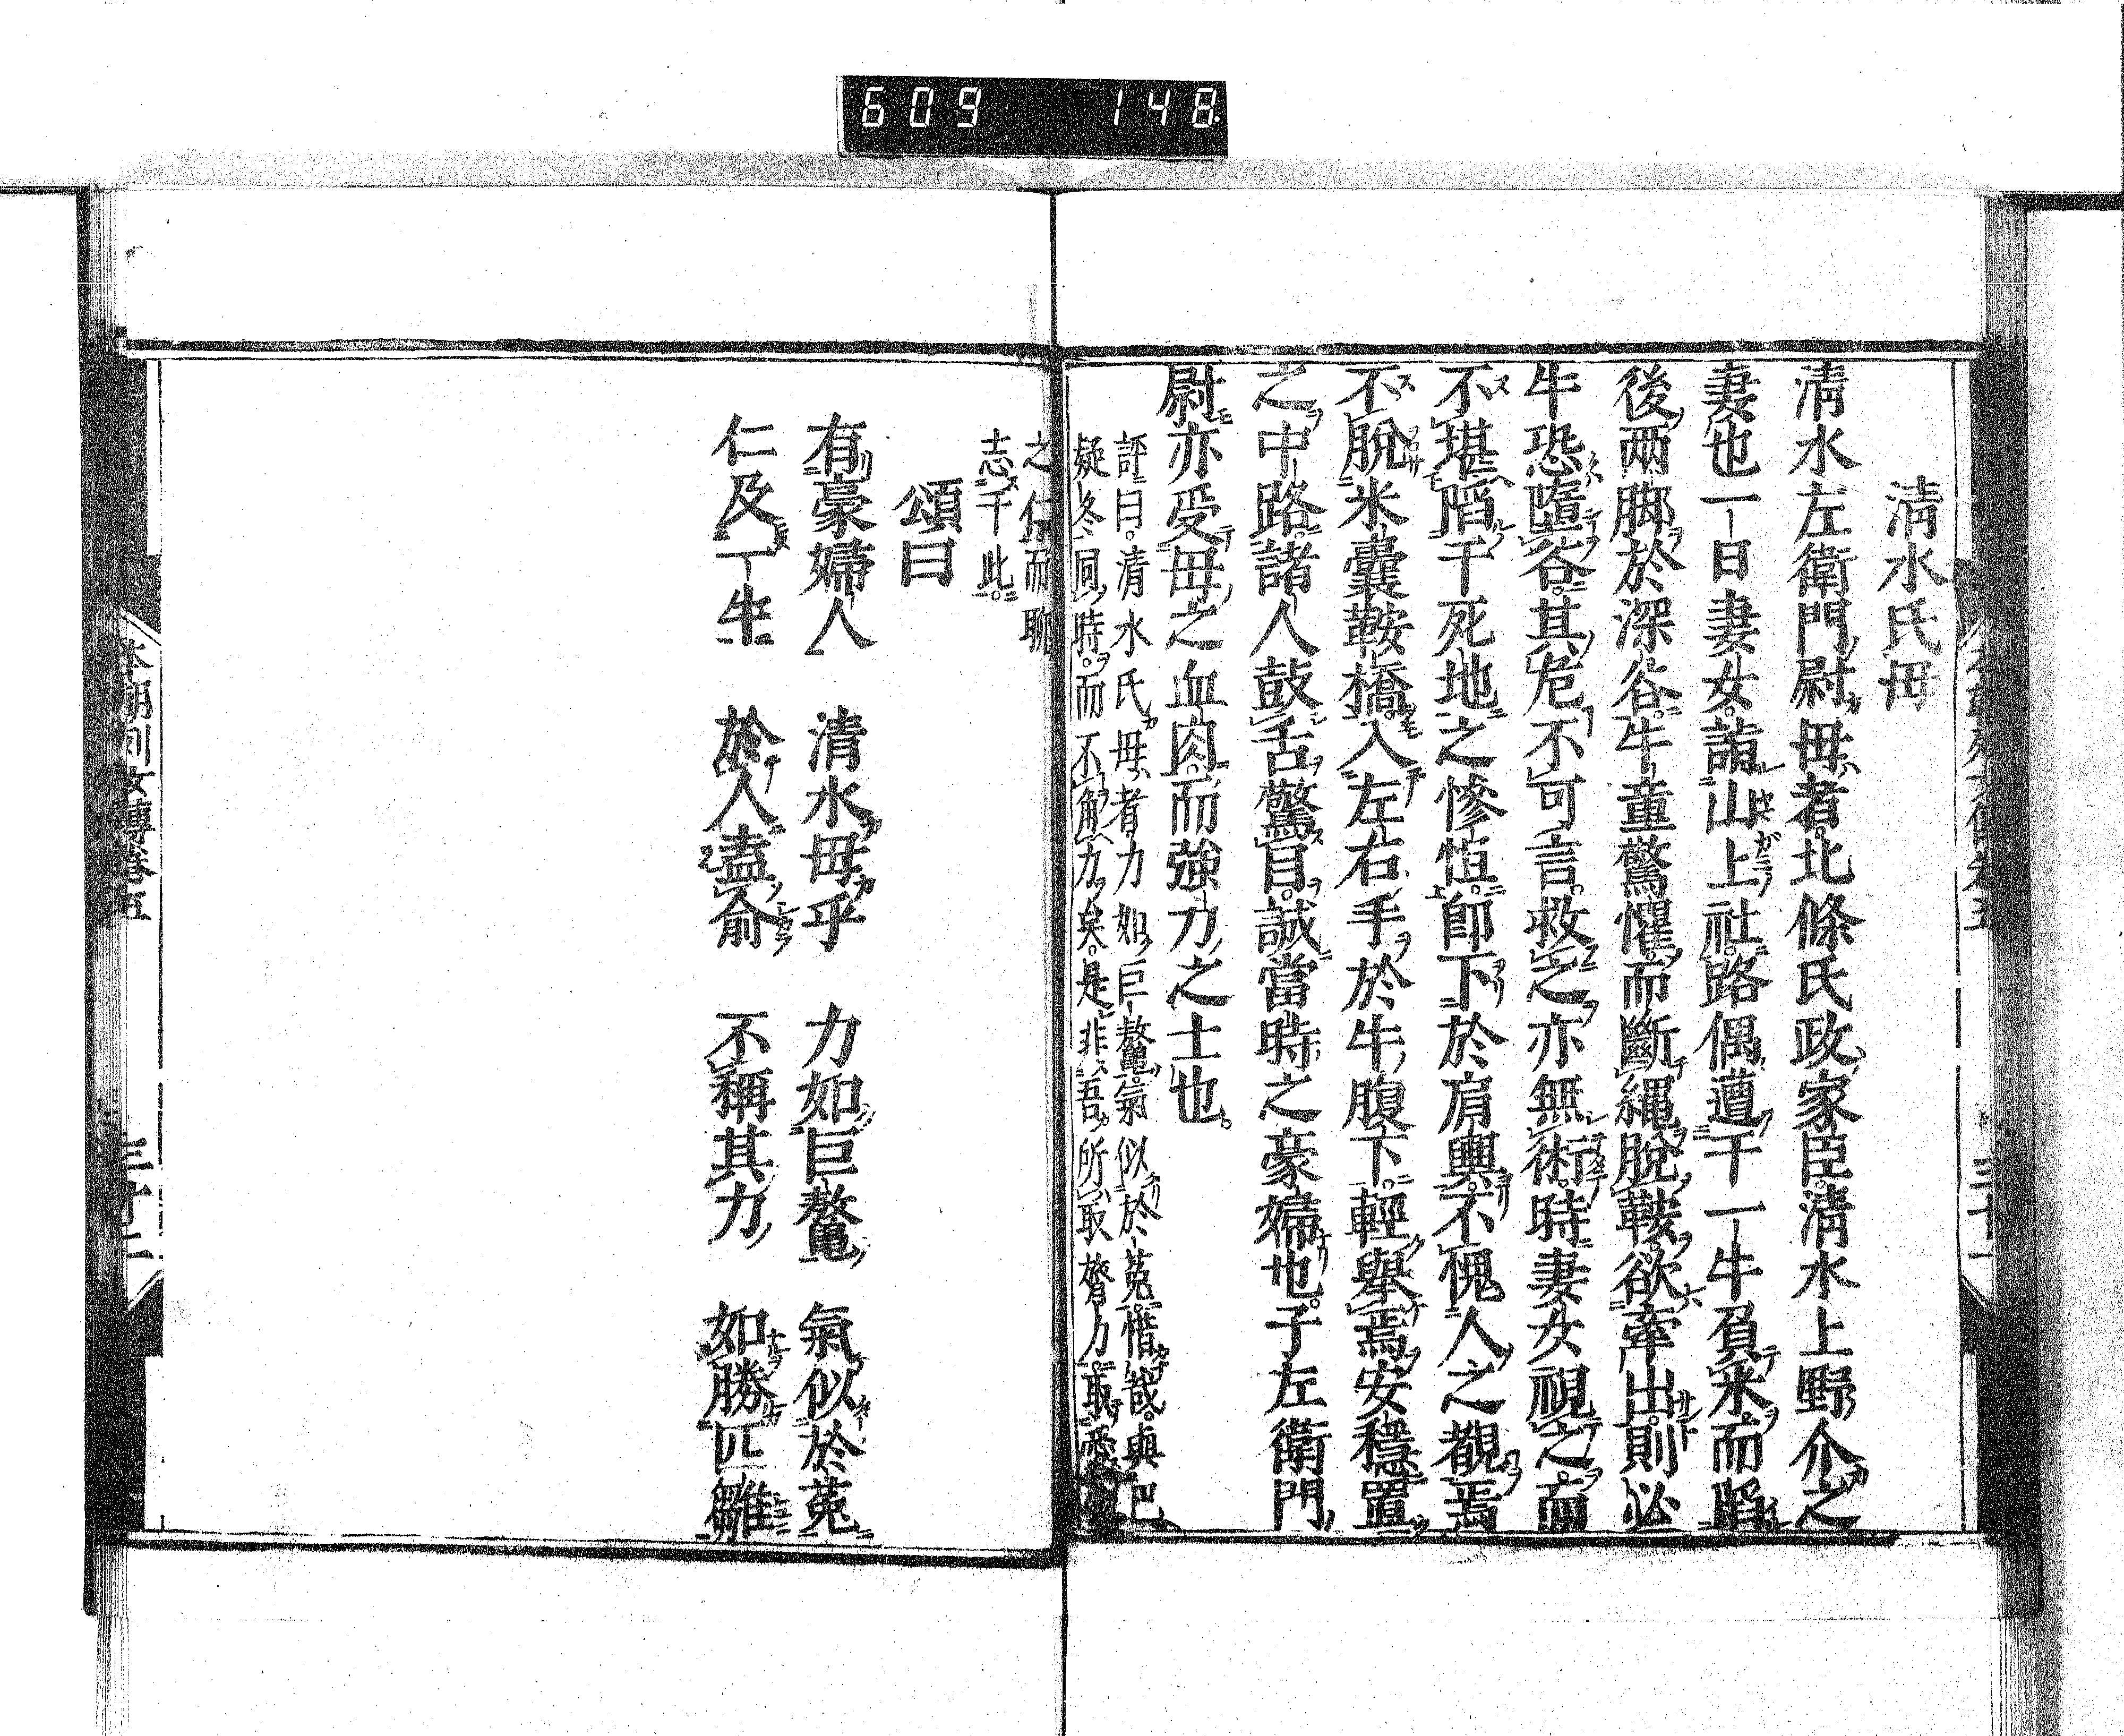 609 148
清水氏毋
清水左衛門尉毋者北條氏政家臣清水上野介之
妻也一日妻女詣山上社路偶遭于一牛負米而陷
後兩脚於深谷牛童驚懼而斷繩脫鞍欲牽出則必
牛恐墮谷其危不可言救之亦無術時妻女視之而
不堪陷于死地之慘怛卽下於肩輿不愧人之覩焉
不脫米囊鞍橋入左右手於牛腹下輕擧焉安穩置
之中路諸人鼓舌驚目誠當時之豪婦也子左衛門
尉亦受毋之血肉而強力之士也
評曰清水氏毋者力如巨鼇氣似於菟惜哉與巴
疑冬同時而不角力矣是非吾所取膂力取愛
之仁而聊
志于此
頌曰
有豪婦人 清水毋乎 力如巨鼇 氣似於菟
仁及丁牛 於人盍俞 不稱其力 如勝匹雛
本朝列女傳卷五 三十二